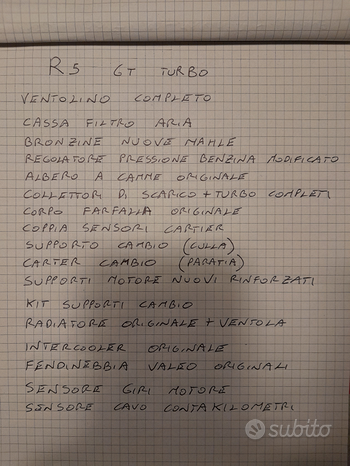 R5 GT TURBO
VENTOLINO COMPLETO
CASSA FILTRO ARIA
BRONZINE NUOVE MAHLE
REGOLATORE PRESSIONE BENZINA MODIFICATO
ALBERO A CAMME ORIGINALE
COLLETTORI DI SCARICO + TURBO COMPLETI
CORPO FARFALLA ORIGINALE
COPPIA SENSORI CARTIER
SUPPORTO CAMBIO (CULLA)
CARTER CAMBIO (PARATIA)
SUPPORTI MOTORE NUOVI RINFORZATI
KIT SUPPORTI CAMBIO
RADIATORE ORIGINALE + VENTOLA
INTERCOOLER ORIGINALE
FENDINEBBIA VALEO ORIGINALI
SENSORE GIRI MOTORE
SENSORE CAVO CONTAKILOMETRI
subito